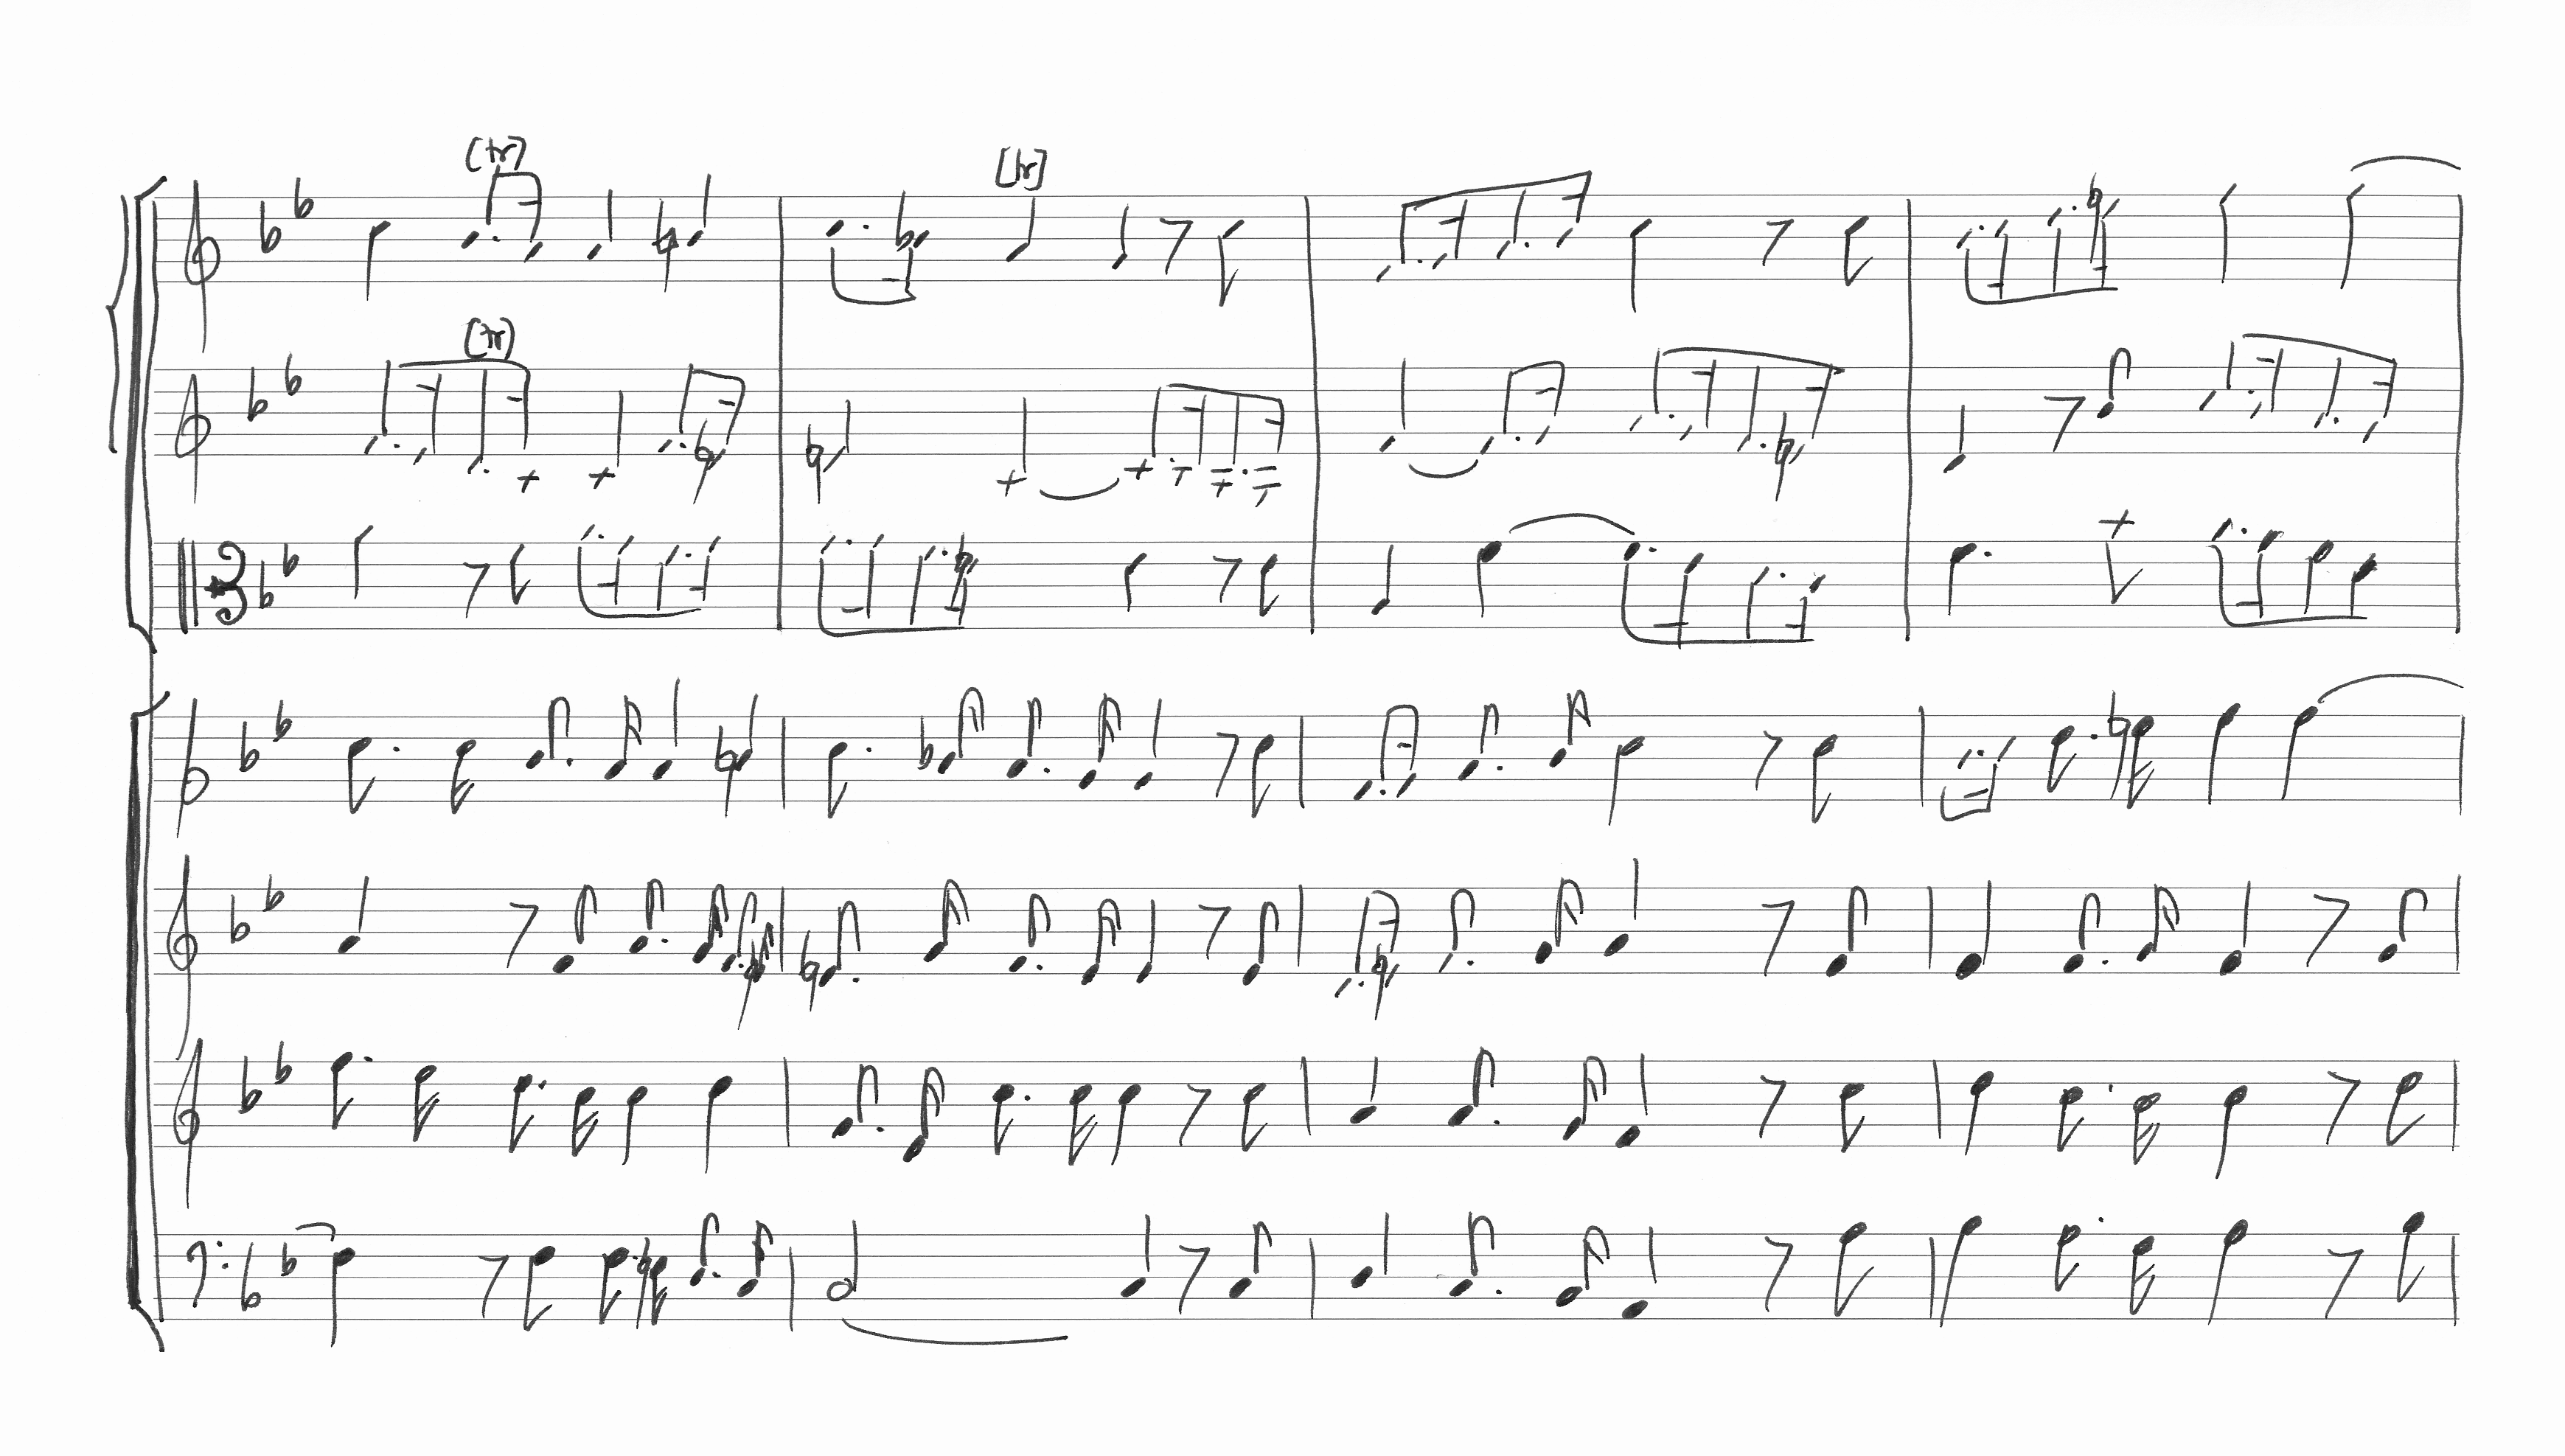 (tr)
[tr]
(tr)